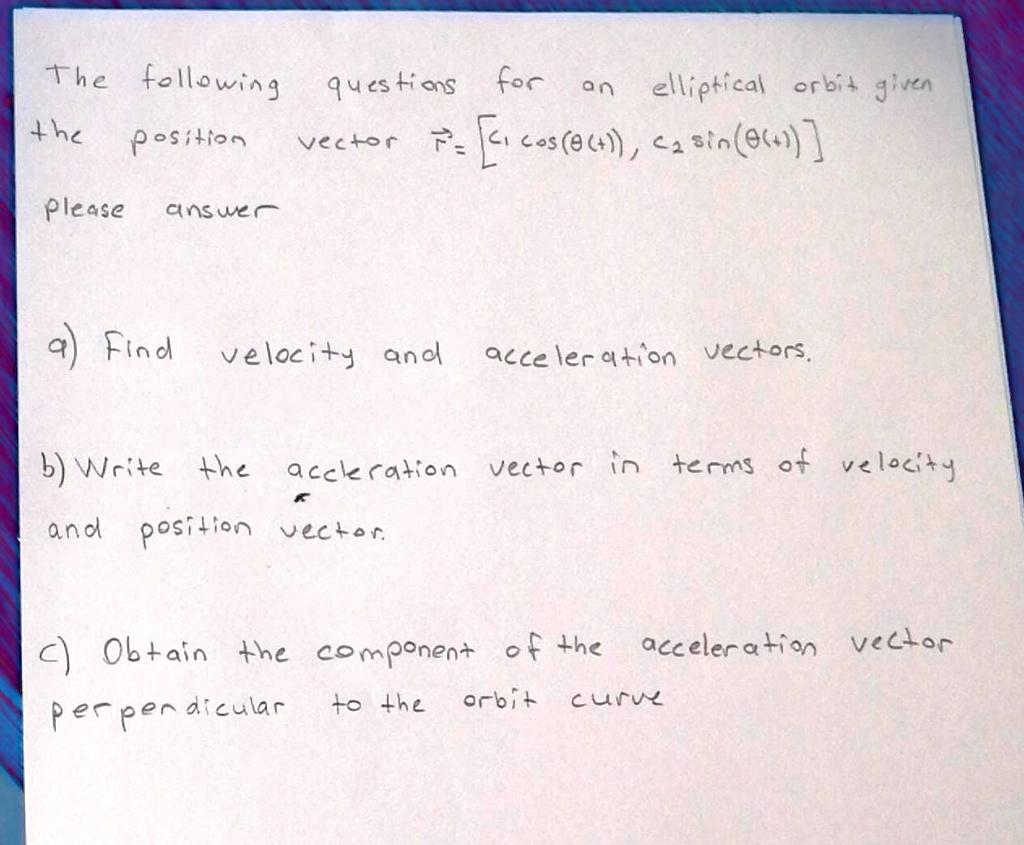 The following questions for an elliptical orbit given
the position vector r⃗= [c₁ cos(θ(t)), c₂ sin(θ(t))]
please answer
a) Find velocity and acceleration vectors.
b) Write the accleration vector in terms of velocity
and position vector.
c) Obtain the component of the acceleration vector
perpendicular to the orbit curve